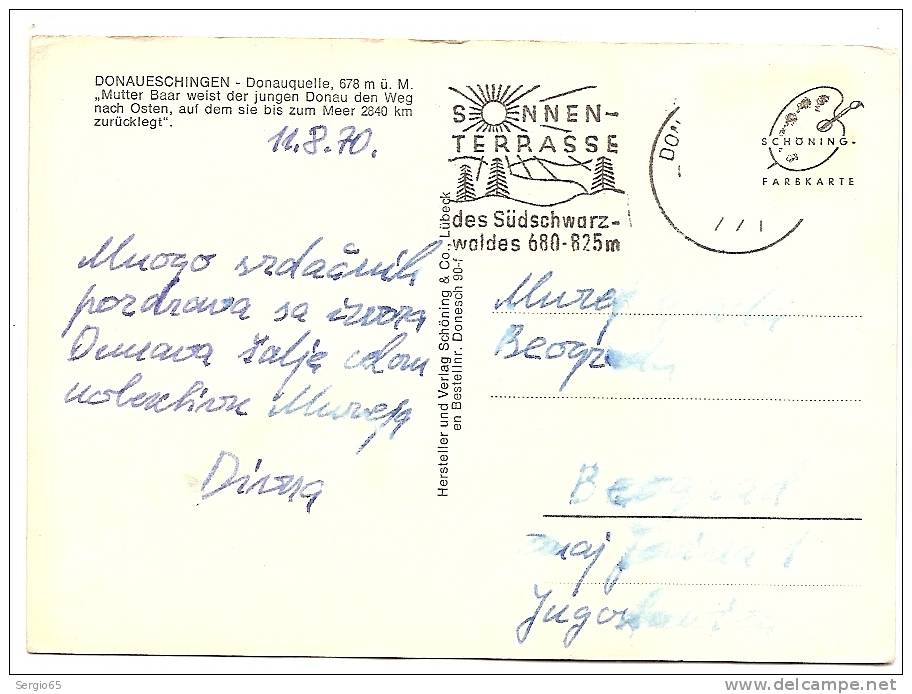 DONAUESCHINGEN - Donauquelle, 678 m ü. M.
„Mutter Baar weist der jungen Donau den Weg
nach Osten, auf dem sie bis zum Meer 2840 km
zurücklegt".
11.8.70.
Mnogo srdačnih
pozdrava sa izvora
Dunava šalje celom
kolektivu Muzeja
Divna
Hersteller und Verlag Schöning & Co., Lübeck
en Bestellnr. Donesch 90-f
SONNEN-
TERRASSE
des Südschwarz-
waldes 680-825m
SCHÖNING-
FARBKARTE
Muzej
Beograda
Beograd
Zmaj Jovina 1
Jugoslavija
Sergio65
delcampe.net